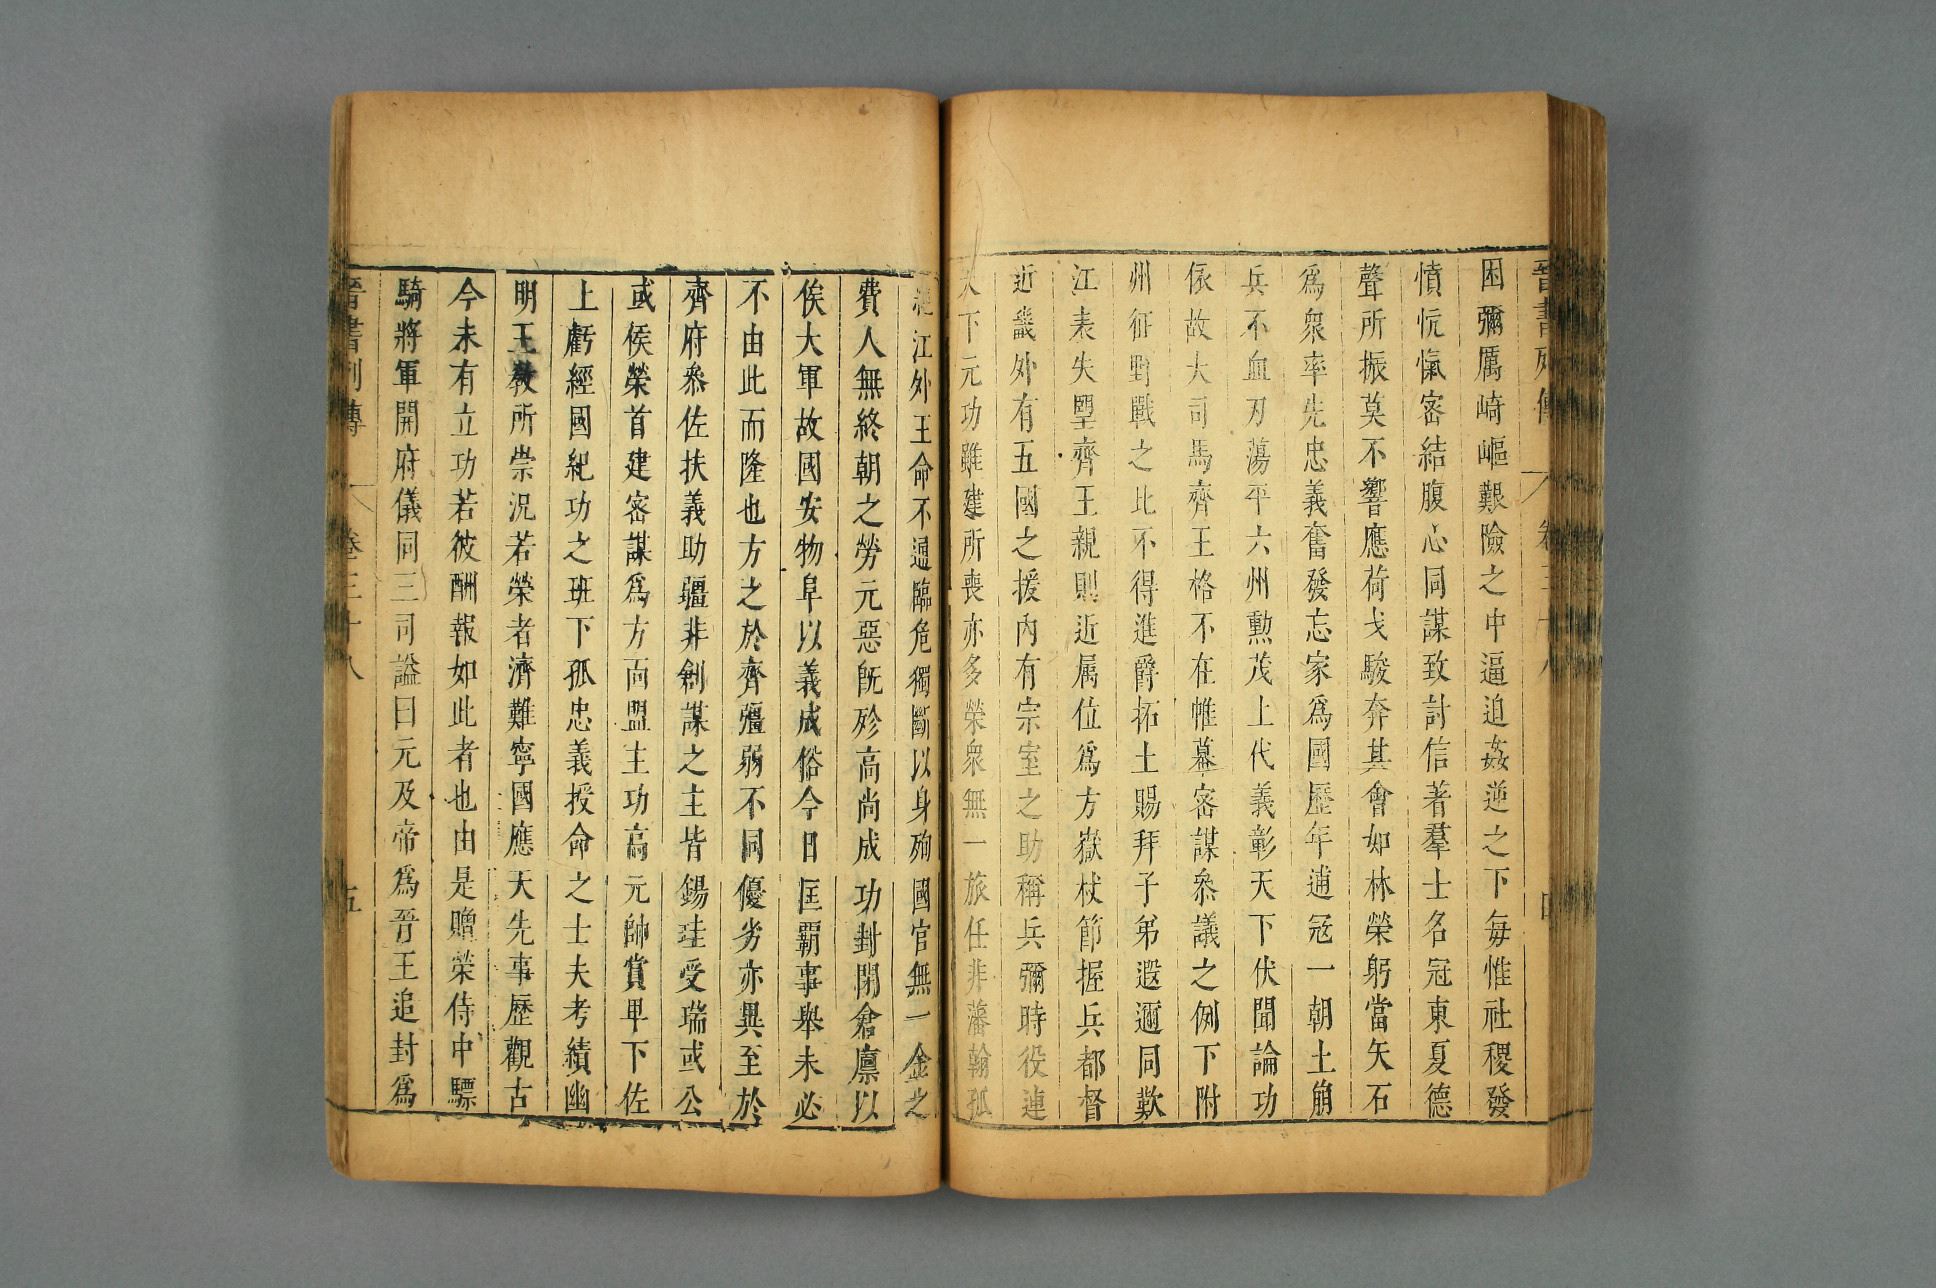 困彌厲崎嶇艱險之中逼迫姦逆之下每惟社稷發
憤忼愾密結腹心同謀致討信著羣士名冠東夏德
聲所振莫不響應荷戈駿奔其會如林榮躬當矢石
爲衆率先忠義奮發忘家爲國歷年逋寇一朝土崩
兵不血刃蕩平六州勲茂上代義彰天下伏聞論功
依故大司馬齊王格不在帷幕密謀叅議之例下附
州征野戰之比不得進爵拓土賜拜子弟遐邇同歎
江表失望齊王親則近属位爲方嶽杖節握兵都督
近畿外有五國之援内有宗室之助稱兵彌時役連
天下元功雖建所喪亦多榮衆無一旅任非藩翰孤
絶江外王命不通臨危獨斷以身殉國官無一金之
費人無終朝之勞元惡旣殄高尚成功封閉倉廪以
俟大軍故國安物阜以義成俗今日匡霸事舉未必
不由此而隆也方之於齊彊弱不同優劣亦異至於
齊府叅佐扶義助疆非創謀之主皆錫珪受瑞或公
或侯榮首建密謀爲方面盟主功高元帥賞卑下佐
上虧經國紀功之班下孤忠義授命之士夫考績幽
明王敎所崇況若榮者濟難寧國應天先事歷觀古
今未有立功若彼酬報如此者也由是贈榮侍中驃
騎將軍開府儀同三司謚曰元及帝爲晉王追封爲
晉書列傳 卷三十八 五